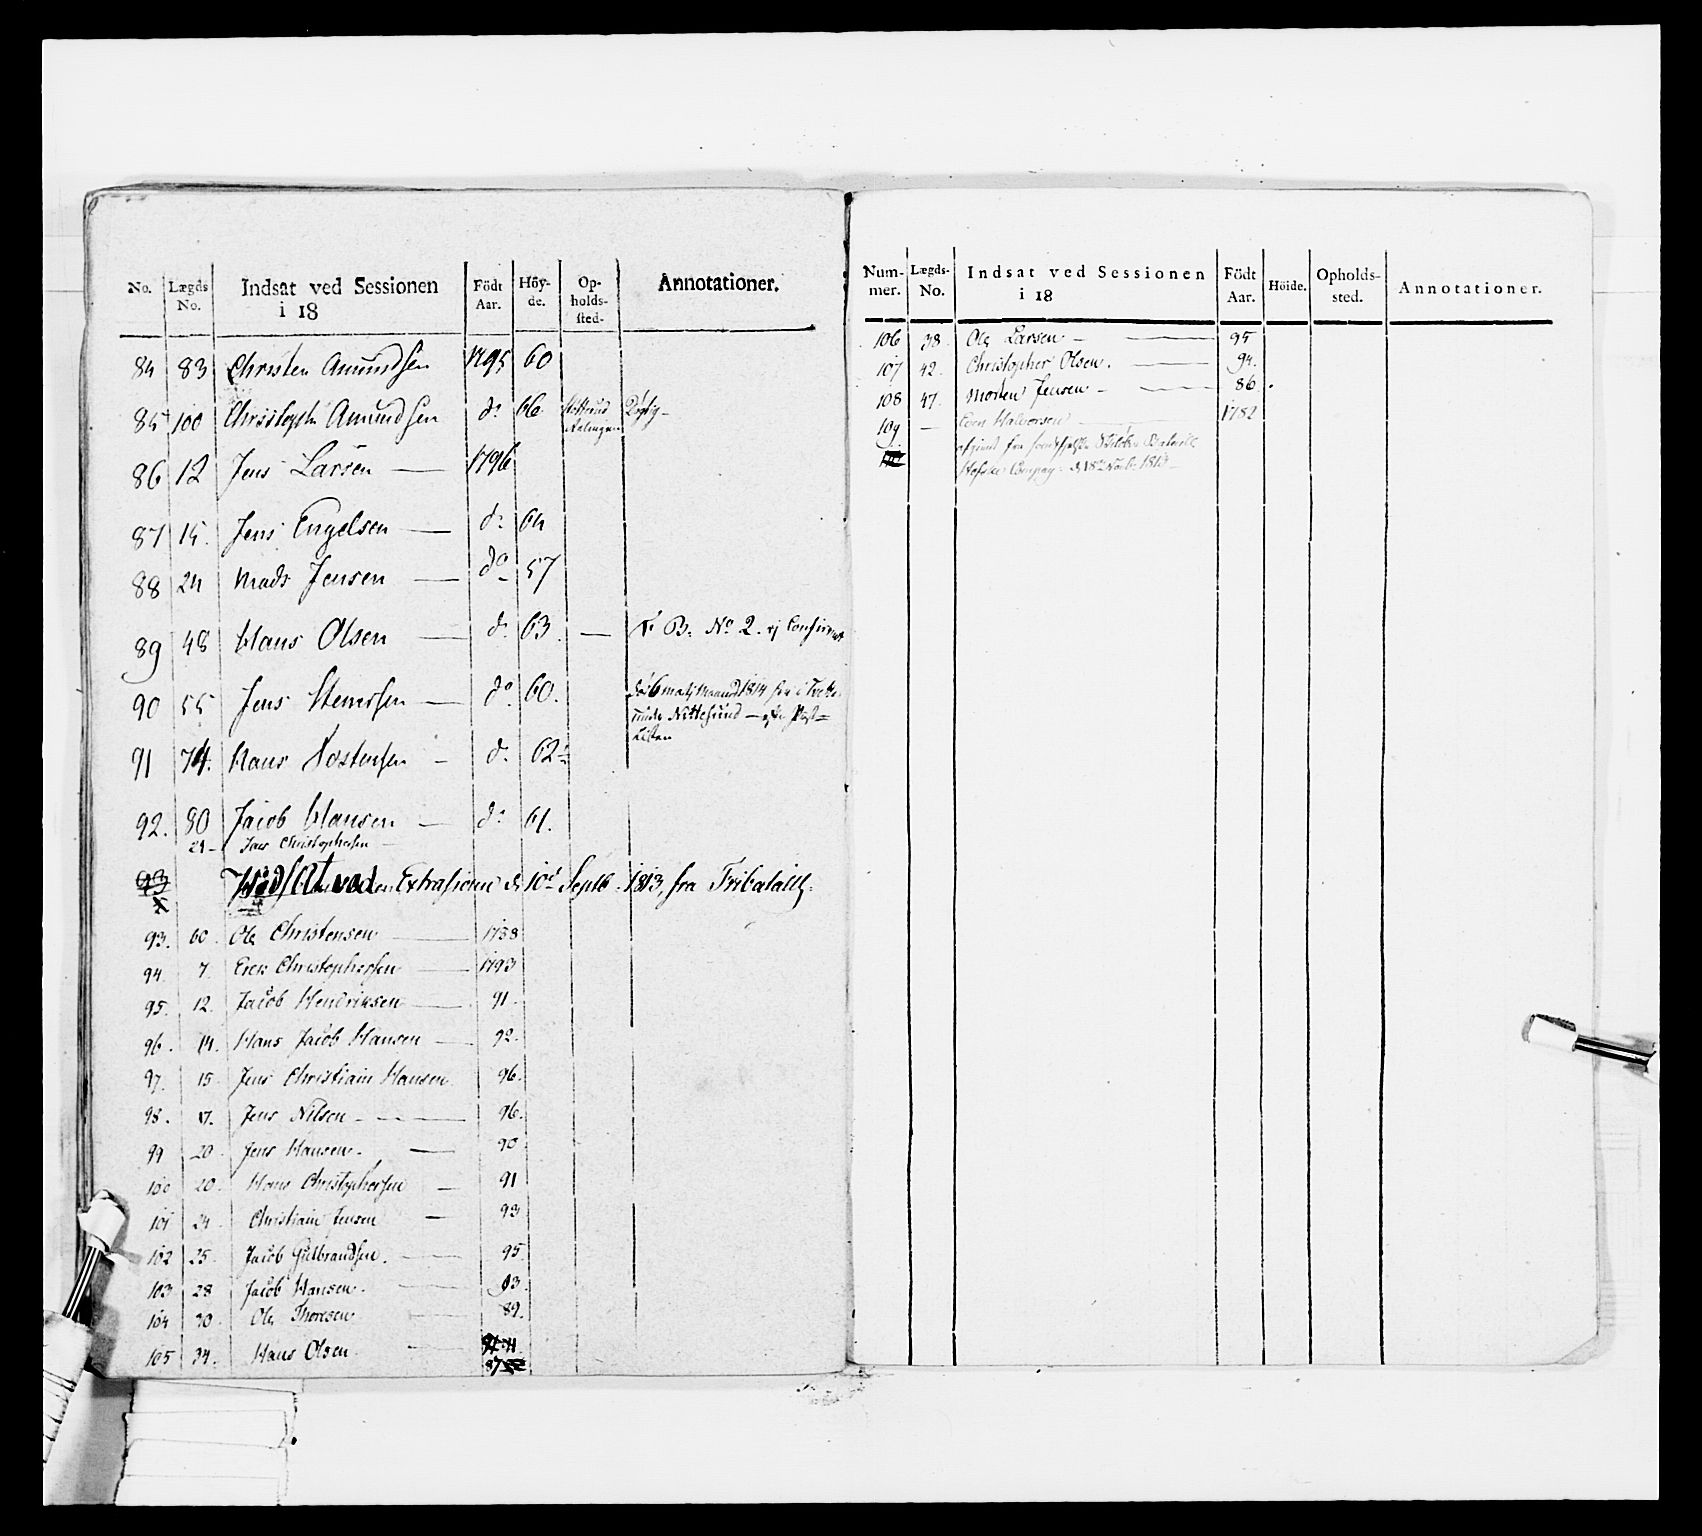 No. Lægds No. Indsat ved Sessionen i 18 Födt Aar. Höy-de. Op-holds-sted. Annotationer.
84 83 Christen Amundsen 1795 60
85 100 Christoph Amundsen do 66
86 12 Jens Larsen — 1796
87 15. Jens Engelsen — do 64
88 24 Mads Jensen — do 57
89 48 Hans Olsen — do 63. — B. No 2. ej Confirmert
90 55 Jens Stensen — do 60. 1814
under — Post=
Listen
91 74. Hans Tostensen — do 62
92. 80 Jacob Hansen — do 61.
21 – Christophersen –
93 Indsat ved Extrasession d 10d Septb. 1813, fra
93. 60. Ole Christensen — 1788
94. 7. Erek Christophersen — 1793
95. 12. Jacob Hendriksen — 91.
96. 14. Hans Jacob Hansen — 92.
97. 15. Jens Christian Hansen 96.
98. 17. Jens Nilsen — 96.
99 20. Jens Hansen. — 90
100 20. Hans Christophersen — 91
101 24. Christian Jensen — 93
102 25. Jacob Gulbrandsen. — 95.
103 28 Jacob Hansen. — 93.
104 30. Ole Thoresen 89.
105 34. Hans Olsen. 87
Num-mer. Lægds-No. Indsat ved Sessionen i 18 Födt Aar. Höide. Opholds-sted. Annotationer.
106 38. Ole Larsen — 95
107 42. Christopher Olsen. — 94.
108 47. Morten Jensen — 86.
109 — Halvorsen — 1782
fra
1813